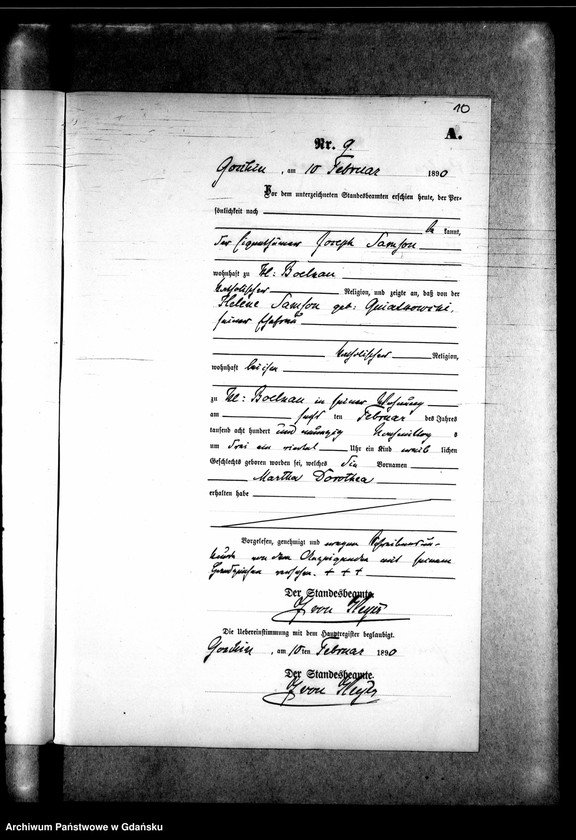 10
A.
Nr. 9.
, am 10 Februar 1890
Vor dem unterzeichneten Standesbeamten erschien heute, der Per-
sönlichkeit nach
be kannt,
der Eigenthümer Joseph Samson
wohnhaft zu Kl: Boelkau
katholischer Religion, und zeigte an, daß von der
Helene Samson geb: Kwiatkowski,
seiner Ehefrau
katholischer Religion,
wohnhaft bei ihm
zu Kl: Boelkau in seiner Wohnung
am sechsten Februar des Jahres
tausend acht hundert und neunzig Nachmittag s
um drei ein viertel Uhr ein Kind weib lichen
Geschlechts geboren worden sei, welches die Vornamen
Martha Dorothea
erhalten habe
Vorgelesen, genehmigt und wegen Schreibensun-
kunde von dem Anzeigenden mit seinem
Handzeichen versehen. + + +
Der Standesbeamte.
von Heyer
Die Uebereinstimmung mit dem Hauptregister beglaubigt.
, am 10ten Februar 1890
Der Standesbeamte.
von Heyer
Archiwum Państwowe w Gdańsku